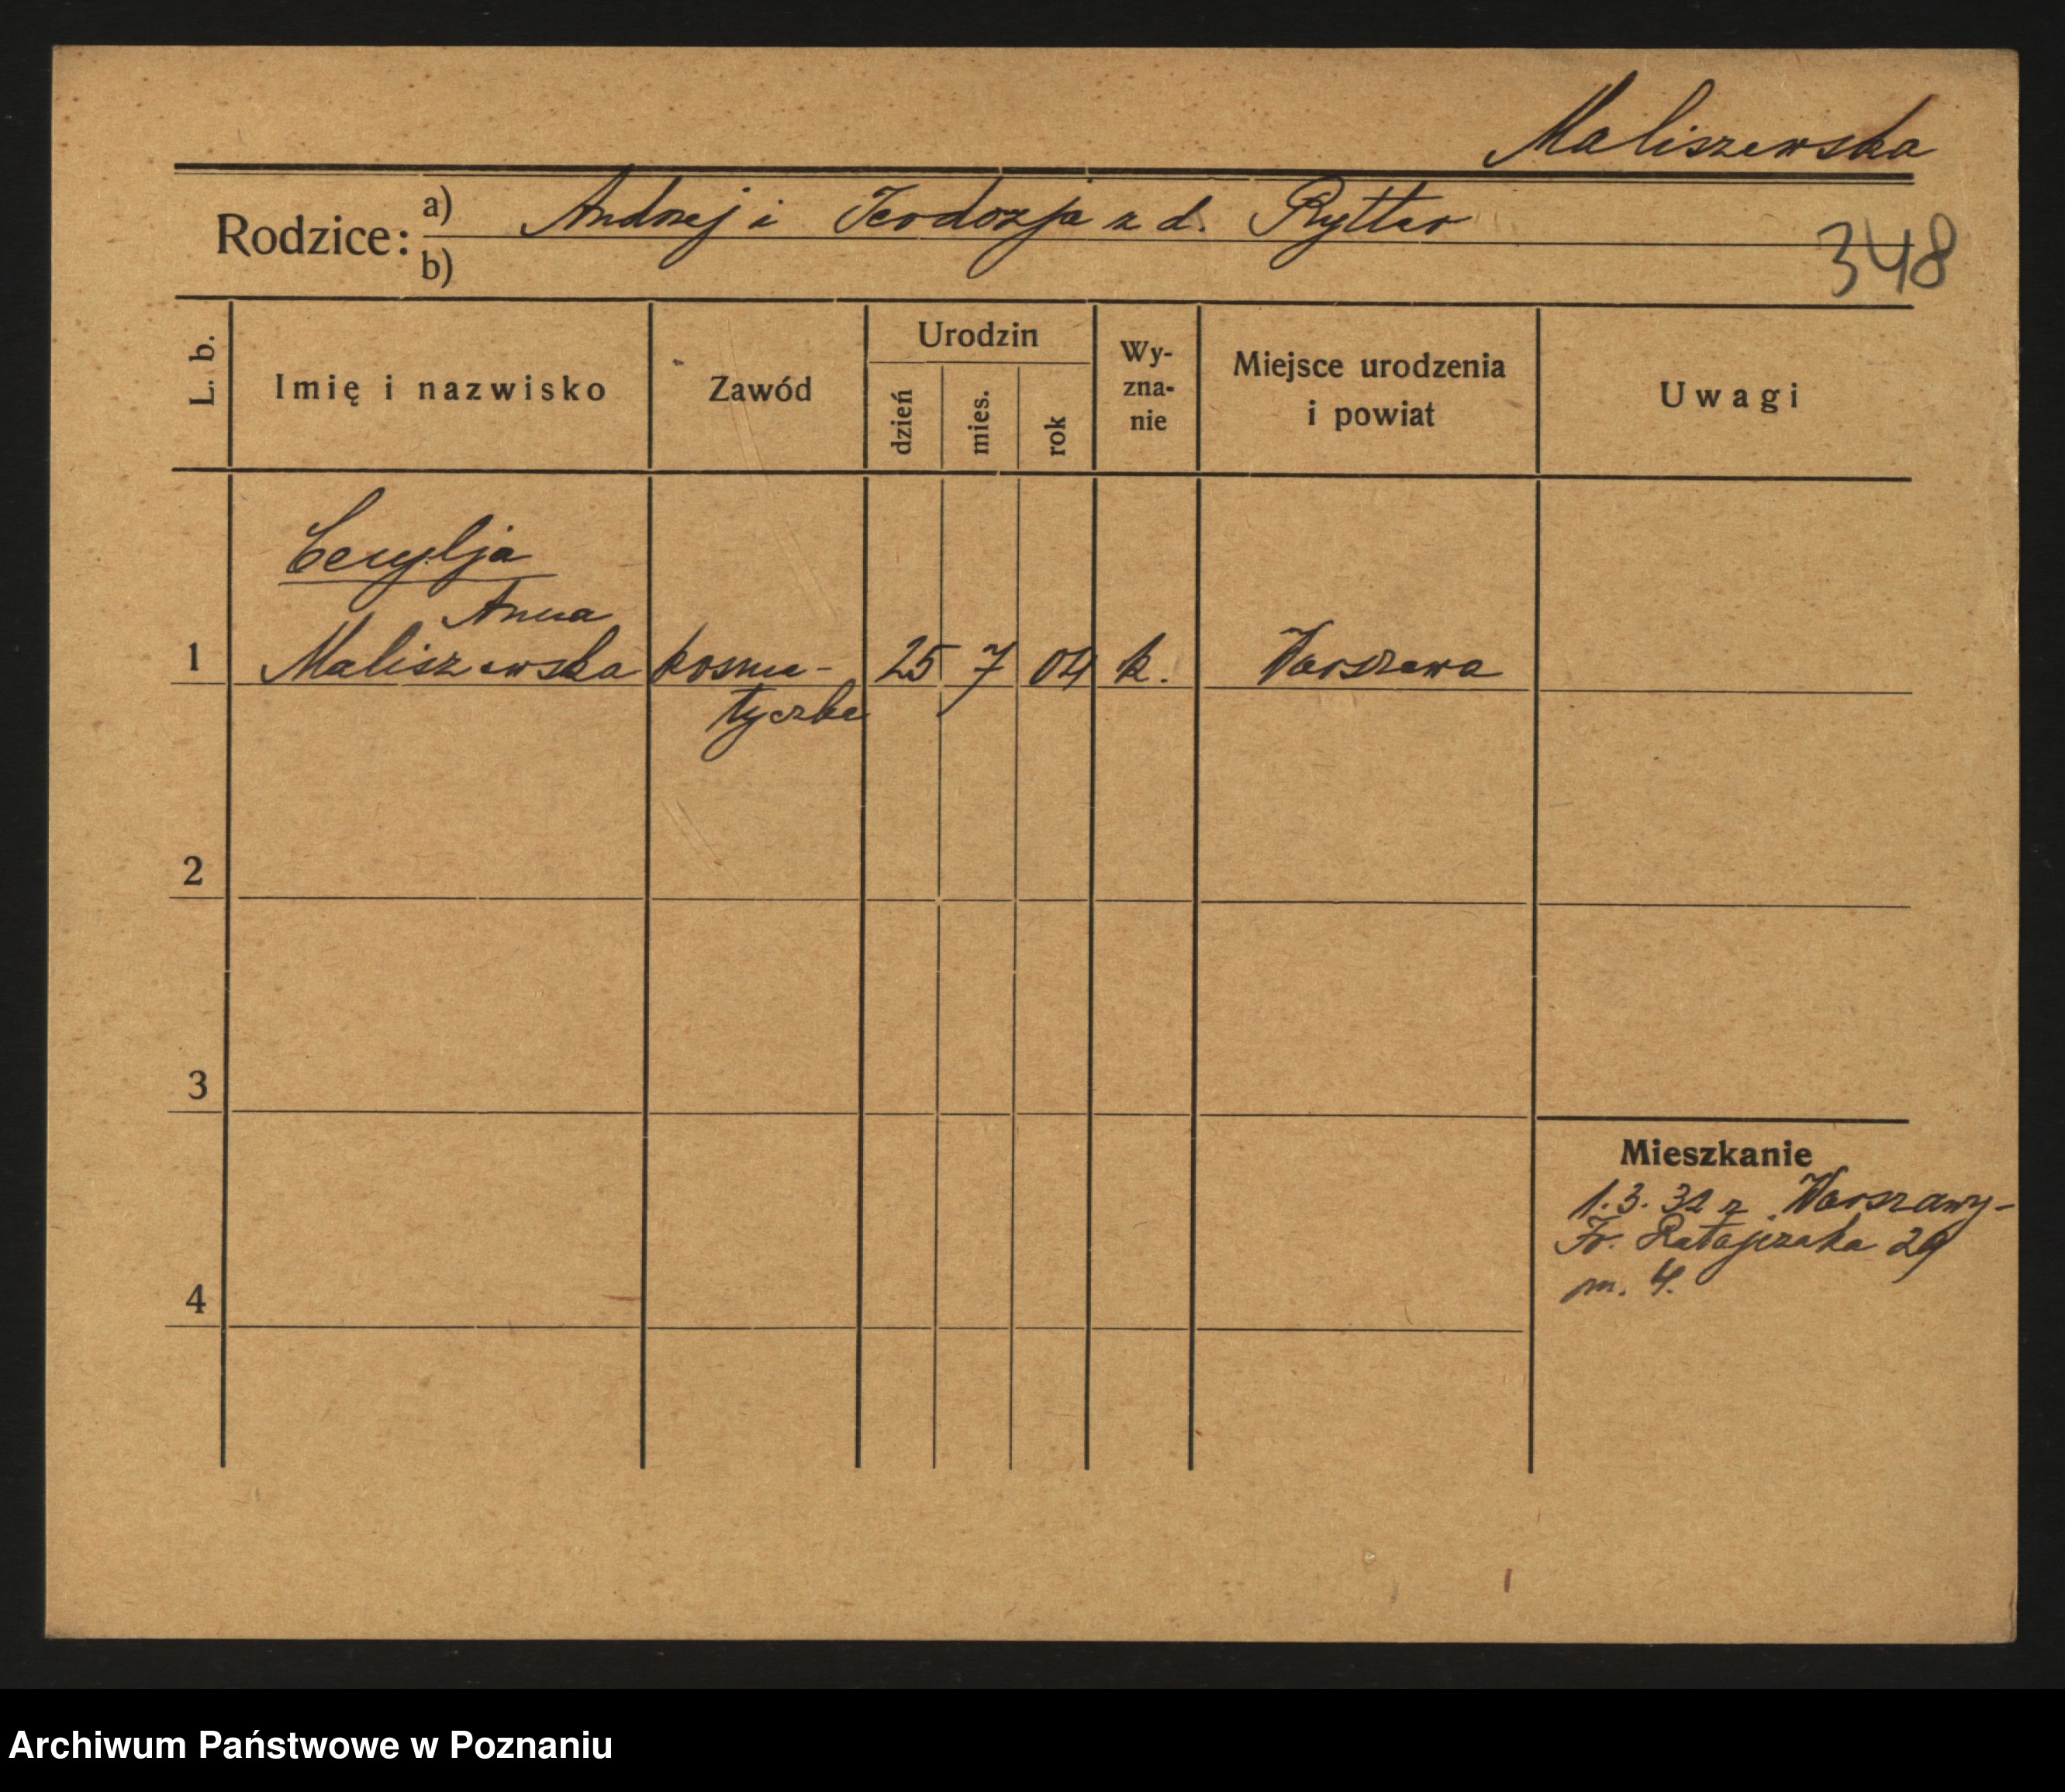 Maliszewska
Rodzice: a) Andrzej i Teodozja z d. Rytter
b)
348
L. b. Imię i nazwisko Zawód Urodzin dzień mies. rok Wy-zna-nie Miejsce urodzenia i powiat Uwagi
Cecylja
Anna
1 Maliszewska kosme- 25 7 04 k. Warszawa
tyczka
2
3
Mieszkanie
1.3.32 z Warszawy-
Fr. Ratajczaka 29
m. 4.
4
Archiwum Państwowe w Poznaniu